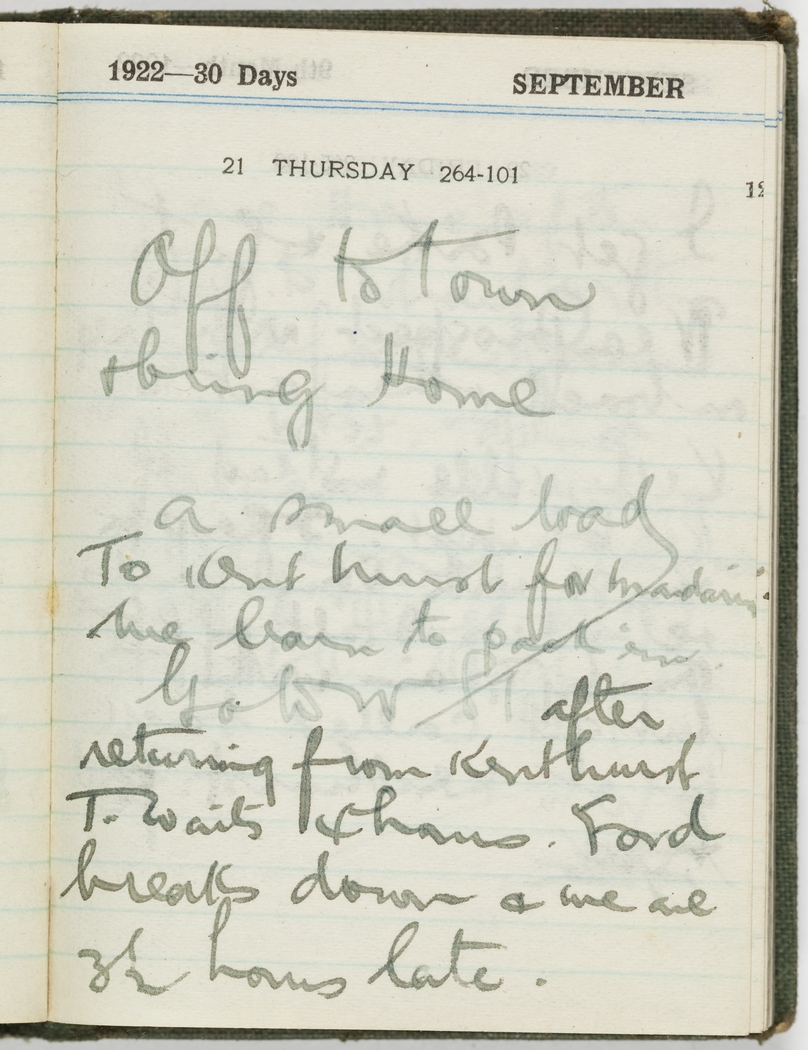 1922—30 Days SEPTEMBER
21 THURSDAY 264-101
Off to Town
& bring Home
a small load
To Kenthurst for
we learn to pack em
Go to W St after
returning from Kenthurst
T. waits 4 hours. Ford
breaks down & we are
3½ hours late.